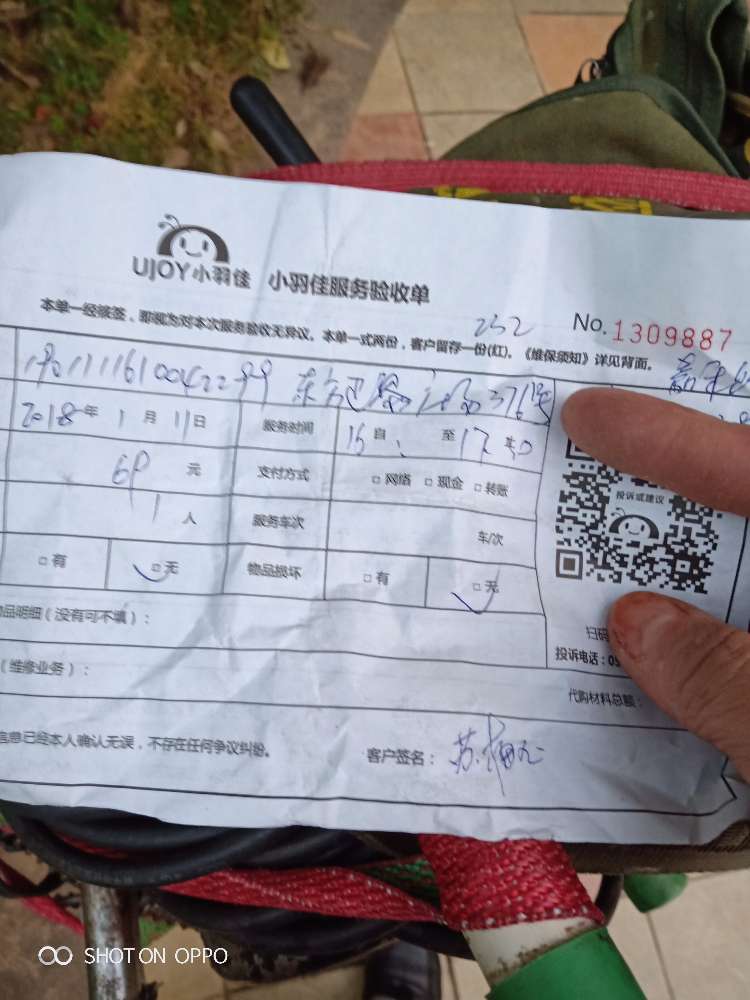 UJOY小羽佳 小羽佳服务验收单
252 No. 1309887
本单一经核签，即视为对本次服务验收无异议。本单一式两份，客户留存一份(红)。《维保须知》详见背面。
376号
2018年 1月 11日 服务时间 自 至 17
元 支付方式 □网络 □现金 □转账
1人 服务车次 车/次
投诉或建议
□有 □无 物品损坏 □有 □无
品明细（没有可不填）：
扫码
投诉电话：05
（维修业务）：
代购材料总额：
信息已经本人确认无误，不存在任何争议纠纷。 客户签名：苏
SHOT ON OPPO